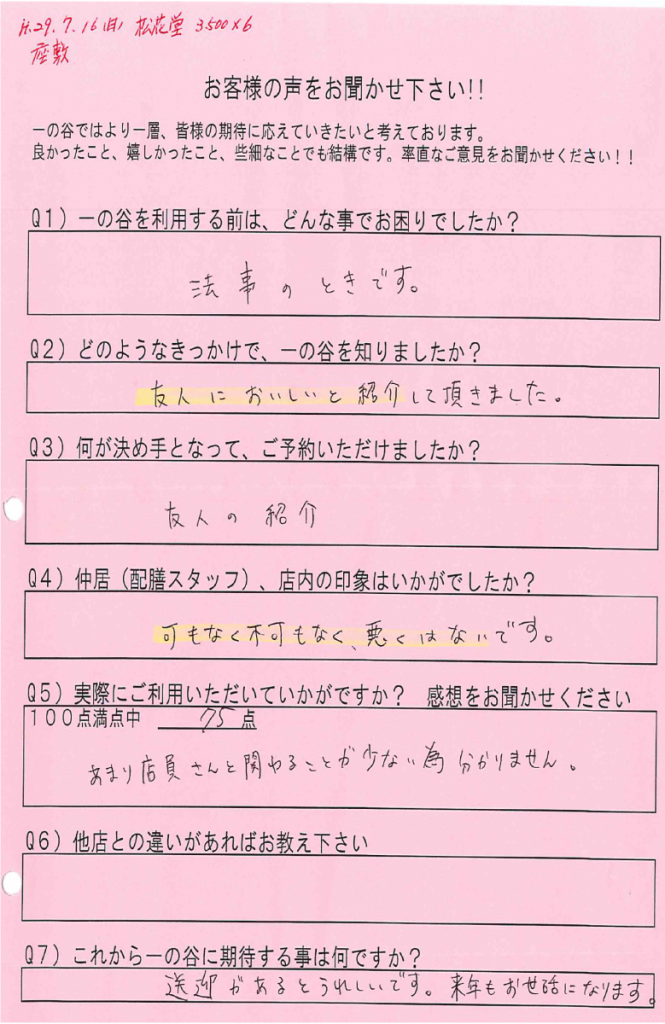 H.29.7.16(日) 松花堂 3500×6
座敷
お客様の声をお聞かせ下さい!!
一の谷ではより一層、皆様の期待に応えていきたいと考えております。
良かったこと、嬉しかったこと、些細なことでも結構です。率直なご意見をお聞かせください！！
Q1）一の谷を利用する前は、どんな事でお困りでしたか？
法事のときです。
Q2）どのようなきっかけで、一の谷を知りましたか？
友人においしいと紹介して頂きました。
Q3）何が決め手となって、ご予約いただけましたか？
友人の紹介
Q4）仲居（配膳スタッフ）、店内の印象はいかがでしたか？
可もなく不可もなく、悪くはないです。
Q5）実際にご利用いただいていかがですか？　感想をお聞かせください
100点満点中　75点
あまり店員さんと関わることが少ない為分かりません。
Q6）他店との違いがあればお教え下さい
Q7）これから一の谷に期待する事は何ですか？
送迎があるとうれしいです。来年もお世話になります。